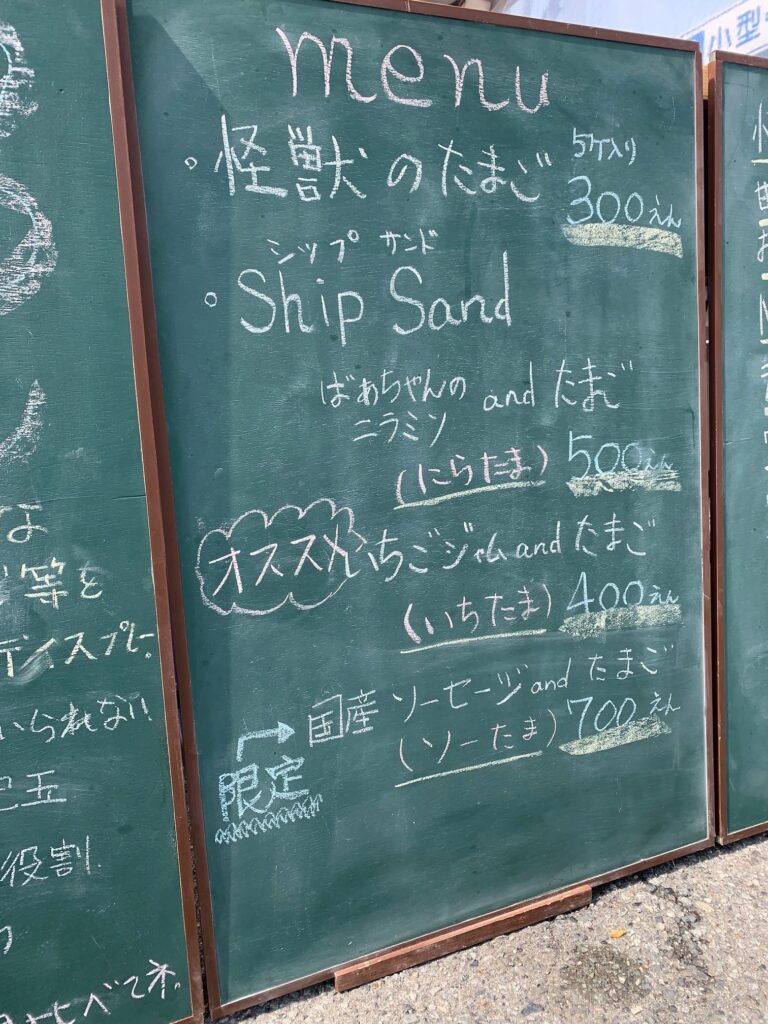 menu
・怪獣のたまご 5ケ入り
300えん
シップ サンド
・Ship Sand
ばあちゃんの and たまご
ニラミソ
(にらたま) 500えん
オススメ いちごジャム and たまご
(いちたま) 400えん
国産 ソーセージ and たまご
(ソーたま) 700えん
限定
小型
な
等を
いられない
役割